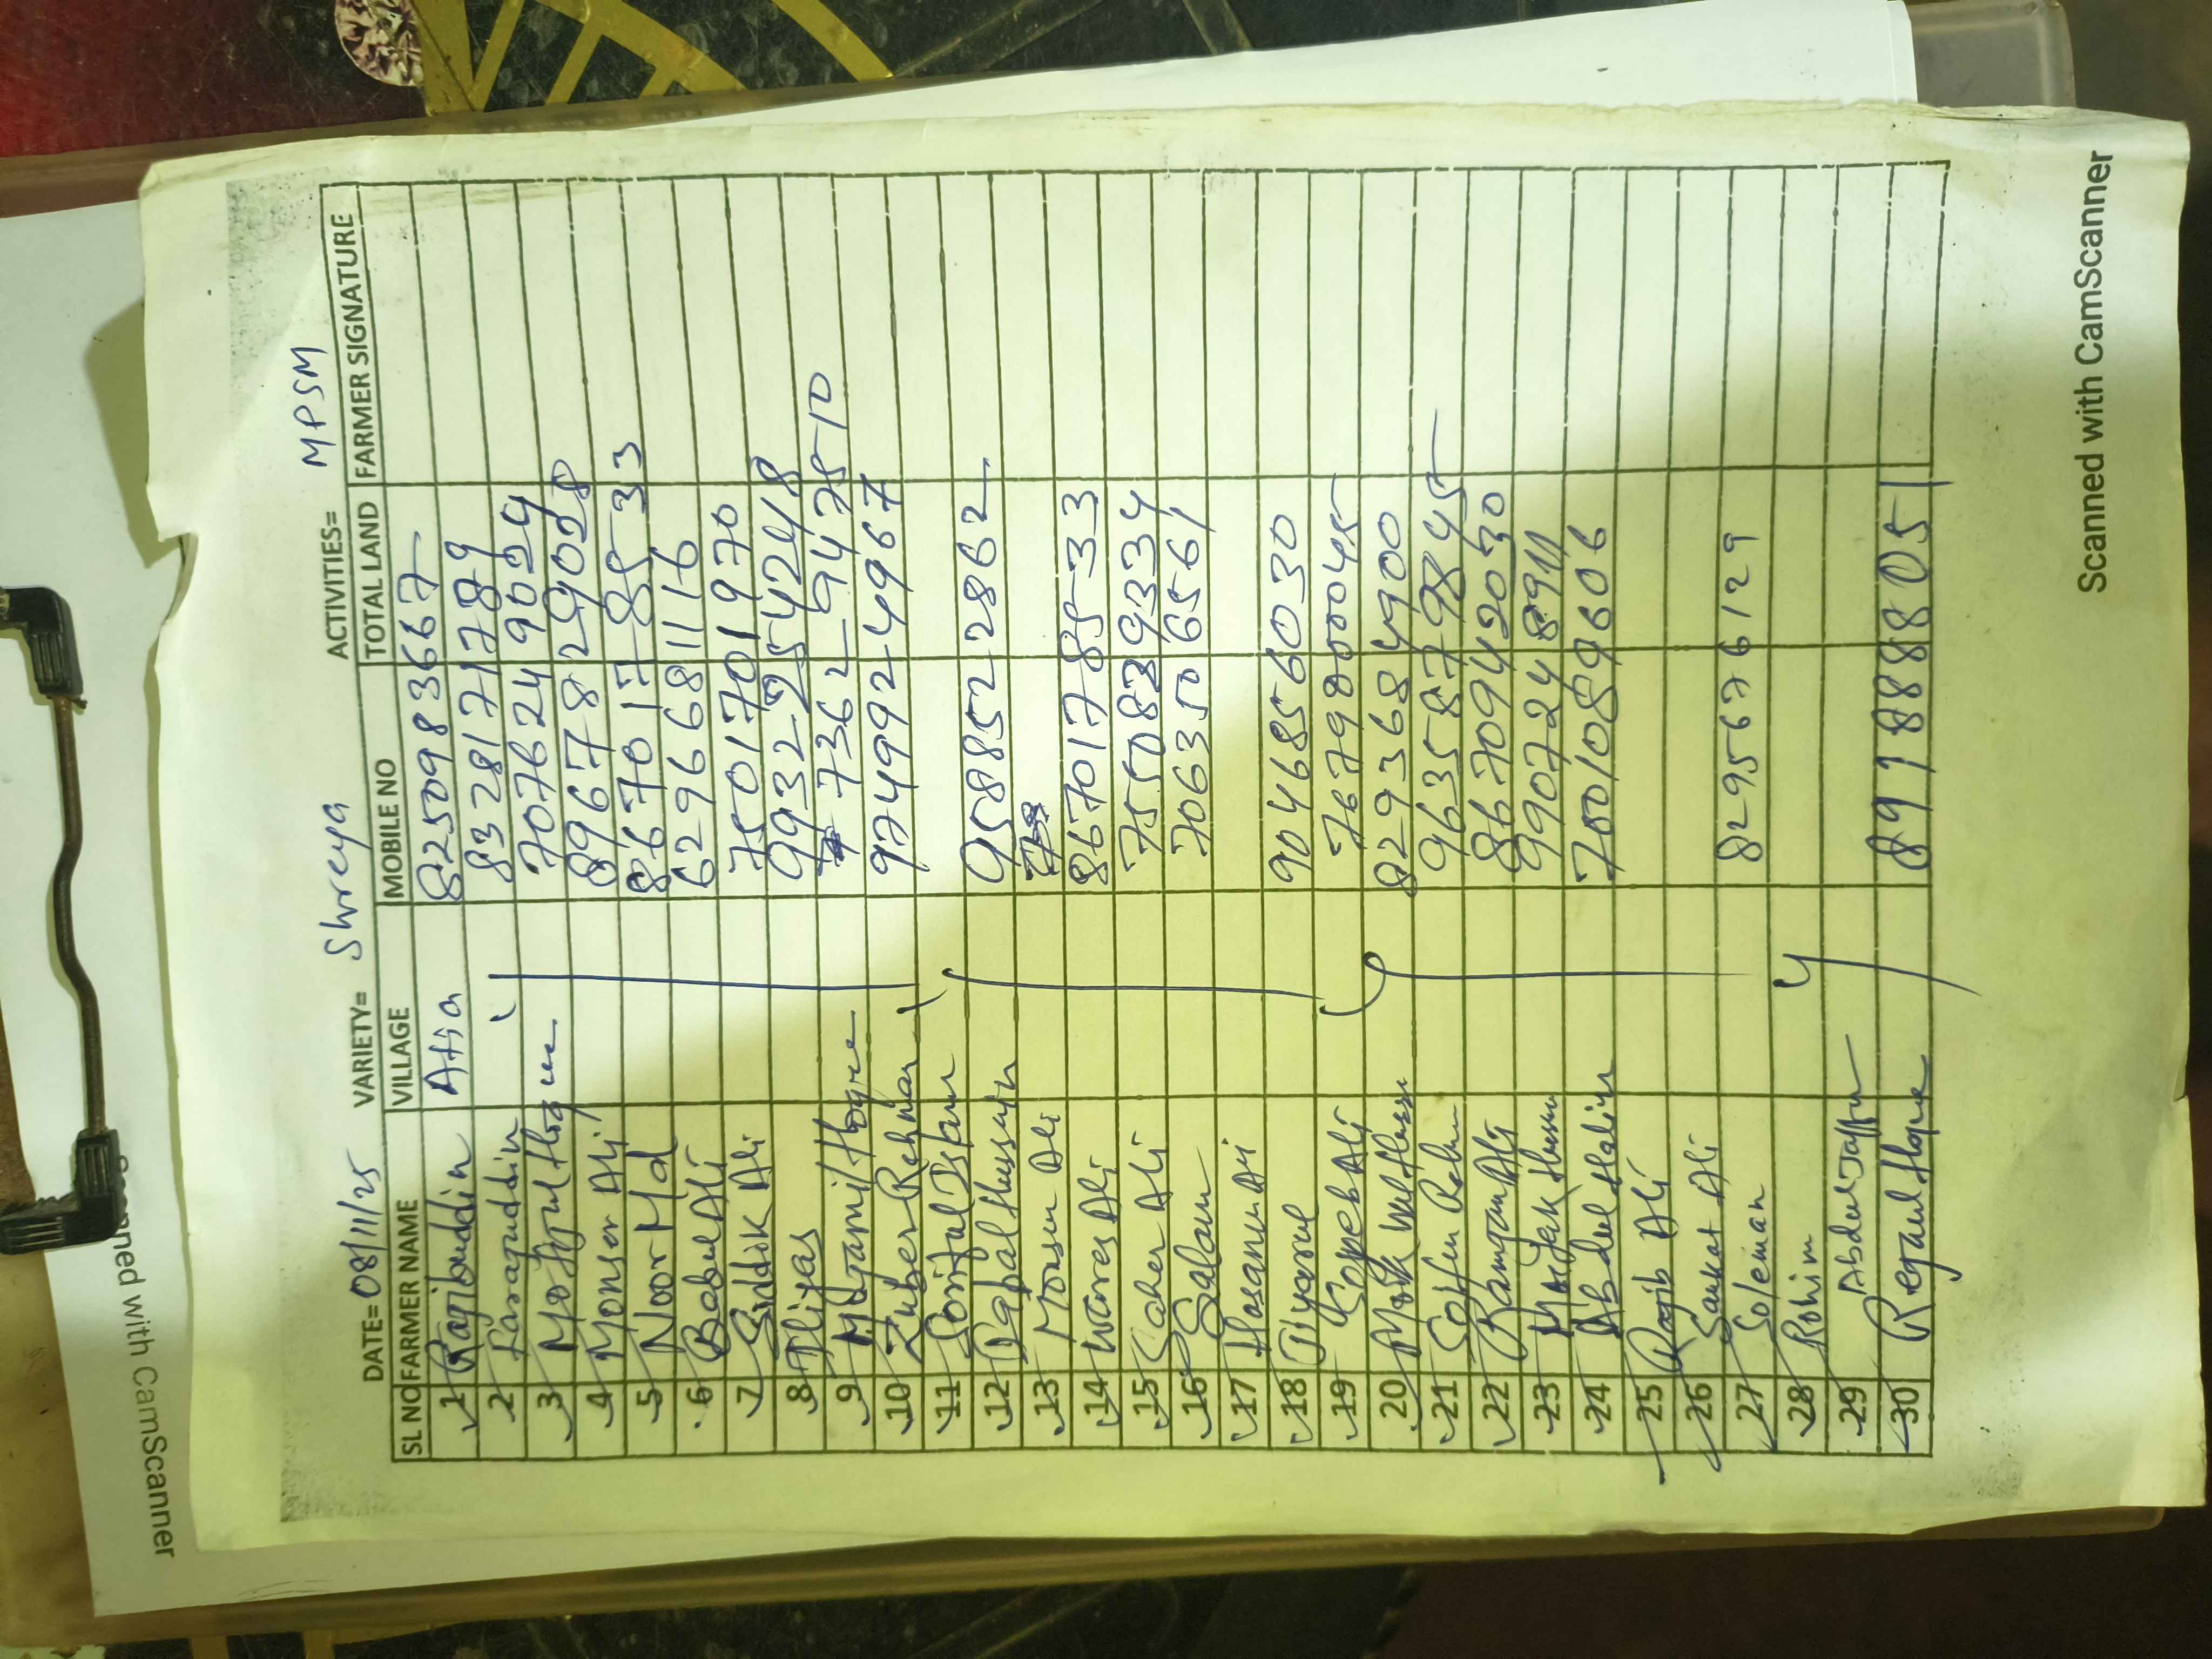 DATE= 08/11/25 VARIETY= Shreya ACTIVITIES= MPSM
SL NO FARMER NAME VILLAGE MOBILE NO TOTAL LAND FARMER SIGNATURE
1 Ragibuddin Atia 8250983667
2 Farraquddin 8328171789
3 Mofijul Hoque 7076249029
4 Monser Ali 8967829028
5 Noor Md 8670178533
6 Babul Ali 6296681116
7 Siddik Ali 7501701970
8 Iliyas 9932954248
9 Mojamil Hoque 7362947510
10 Zuber Rahman 9749924967
11 Soriful Islam
12 Iqbal Hussain 9588522862
13 Monser Ali
14 Wares Ali 8670178533
15 Saher Ali 7550839334
16 Salam 7063506561
17 Hosanur Ali
18 Jiyarul 9046856030
19 Soyeb Ali 7679800045
20 8293684900
21 9635879845
22 Ramjan Ali 8670942030
23 9907248911
24 Abdul Halim 7001089606
25 Rajib Ali
26 Saukat Ali
27 Soleman 8295676129
28 Rohim
29 Abdul Jaffar
30 Rejaul Hoque 8918888051
Scanned with CamScanner
Scanned with CamScanner